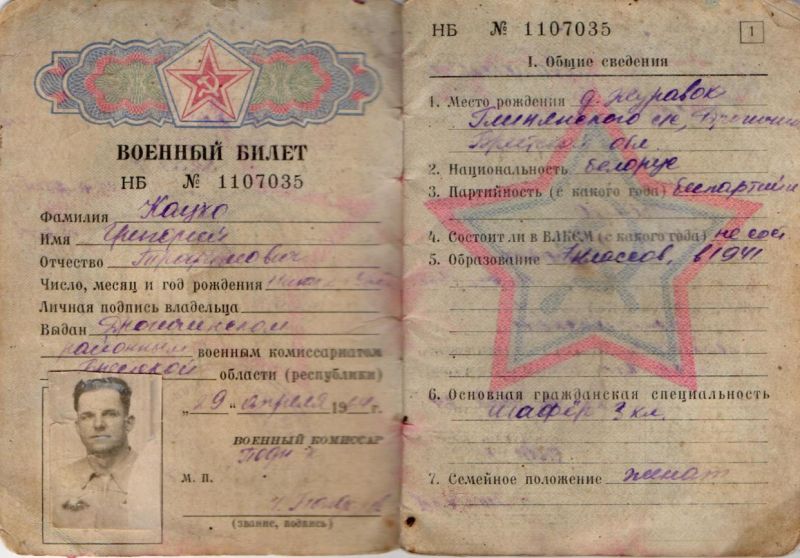 ВОЕННЫЙ БИЛЕТ
НБ № 1107035
Фамилия
Имя Григорий
Отчество
Число, месяц и год рождения
Личная подпись владельца
Выдан
районным военным комиссариатом
Брестской области (республики)
„29“ апреля 19 г.
ВОЕННЫЙ КОМИССАР
М. П.
(звание, подпись)
НБ № 1107035 1
I. Общие сведения
1. Место рождения д. Журавок
Брестской обл.
2. Национальность белорус
3. Партийность (с какого года)
4. Состоит ли в ВЛКСМ (с какого года) не сос
5. Образование классов, в 1941
6. Основная гражданская специальность
шофёр 3 кл.
7. Семейное положение женат